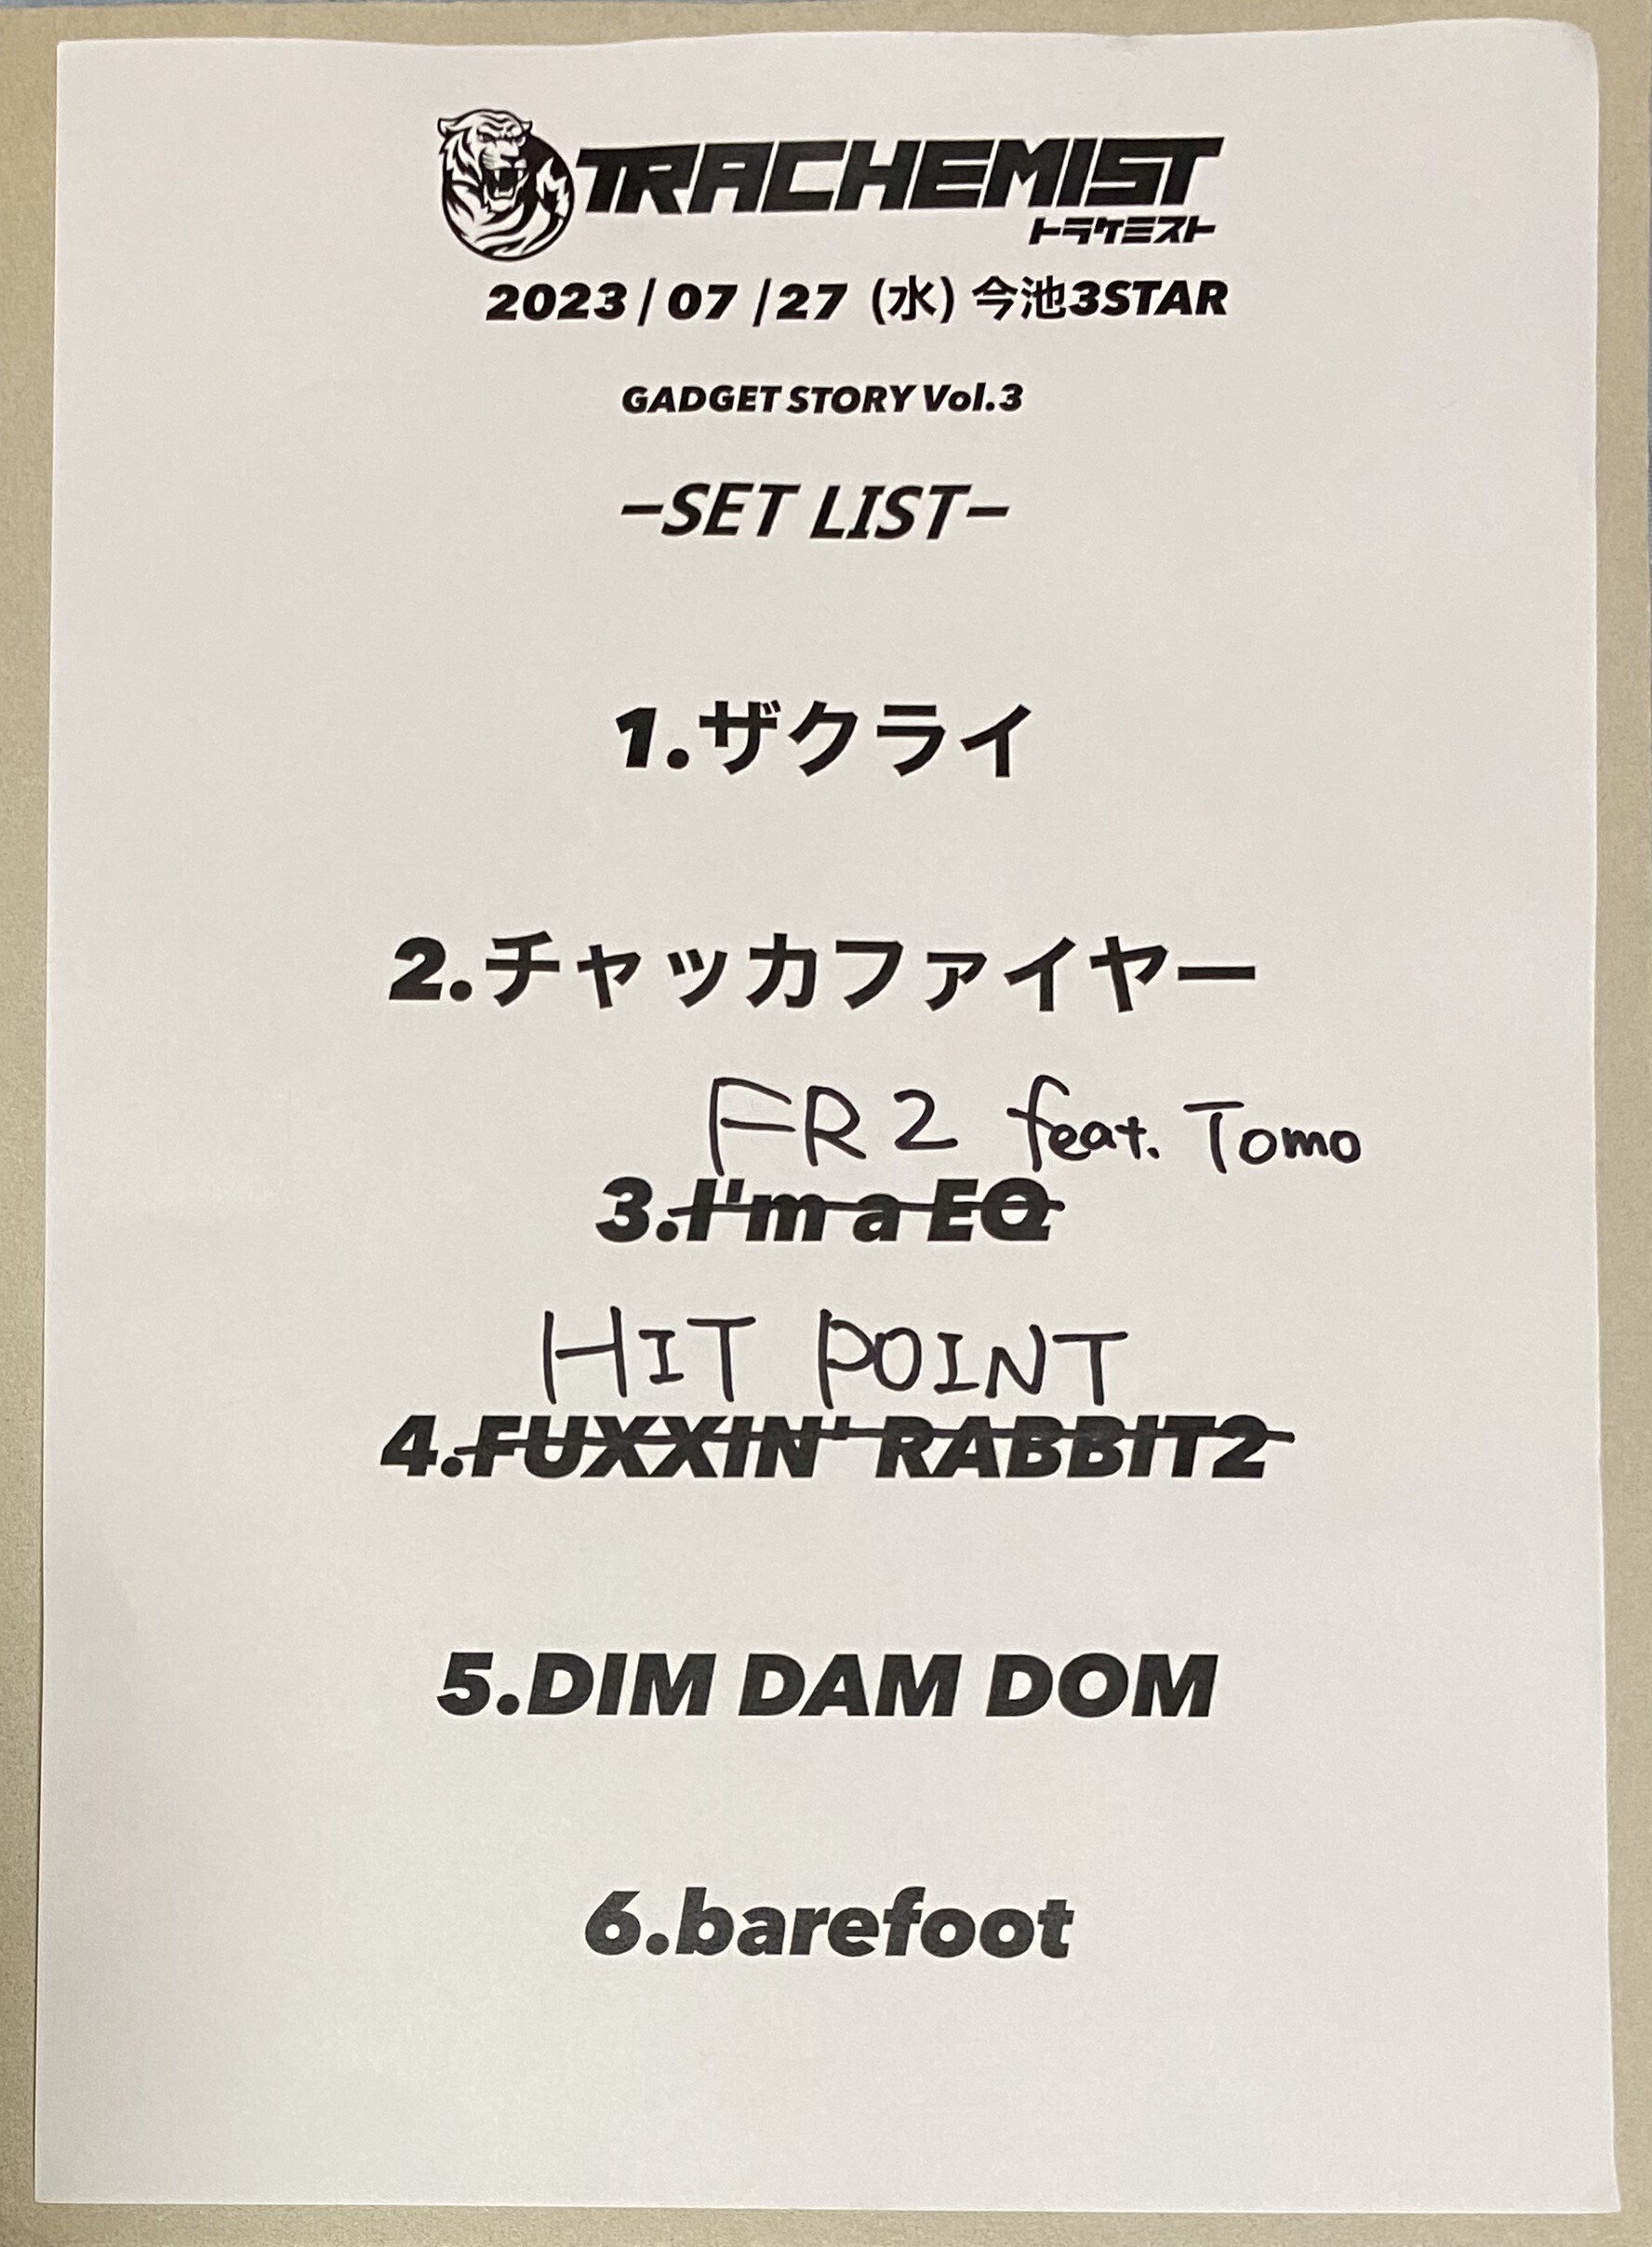 TRACHEMIST
トラケミスト
2023/07/27 (水) 今池3STAR
GADGET STORY Vol.3
–SET LIST–
1.ザクライ
2.チャッカファイヤー
FR2 feat. Tomo
3.I'm a EQ
HIT POINT
4.FUXXIN' RABBIT2
5.DIM DAM DOM
6.barefoot